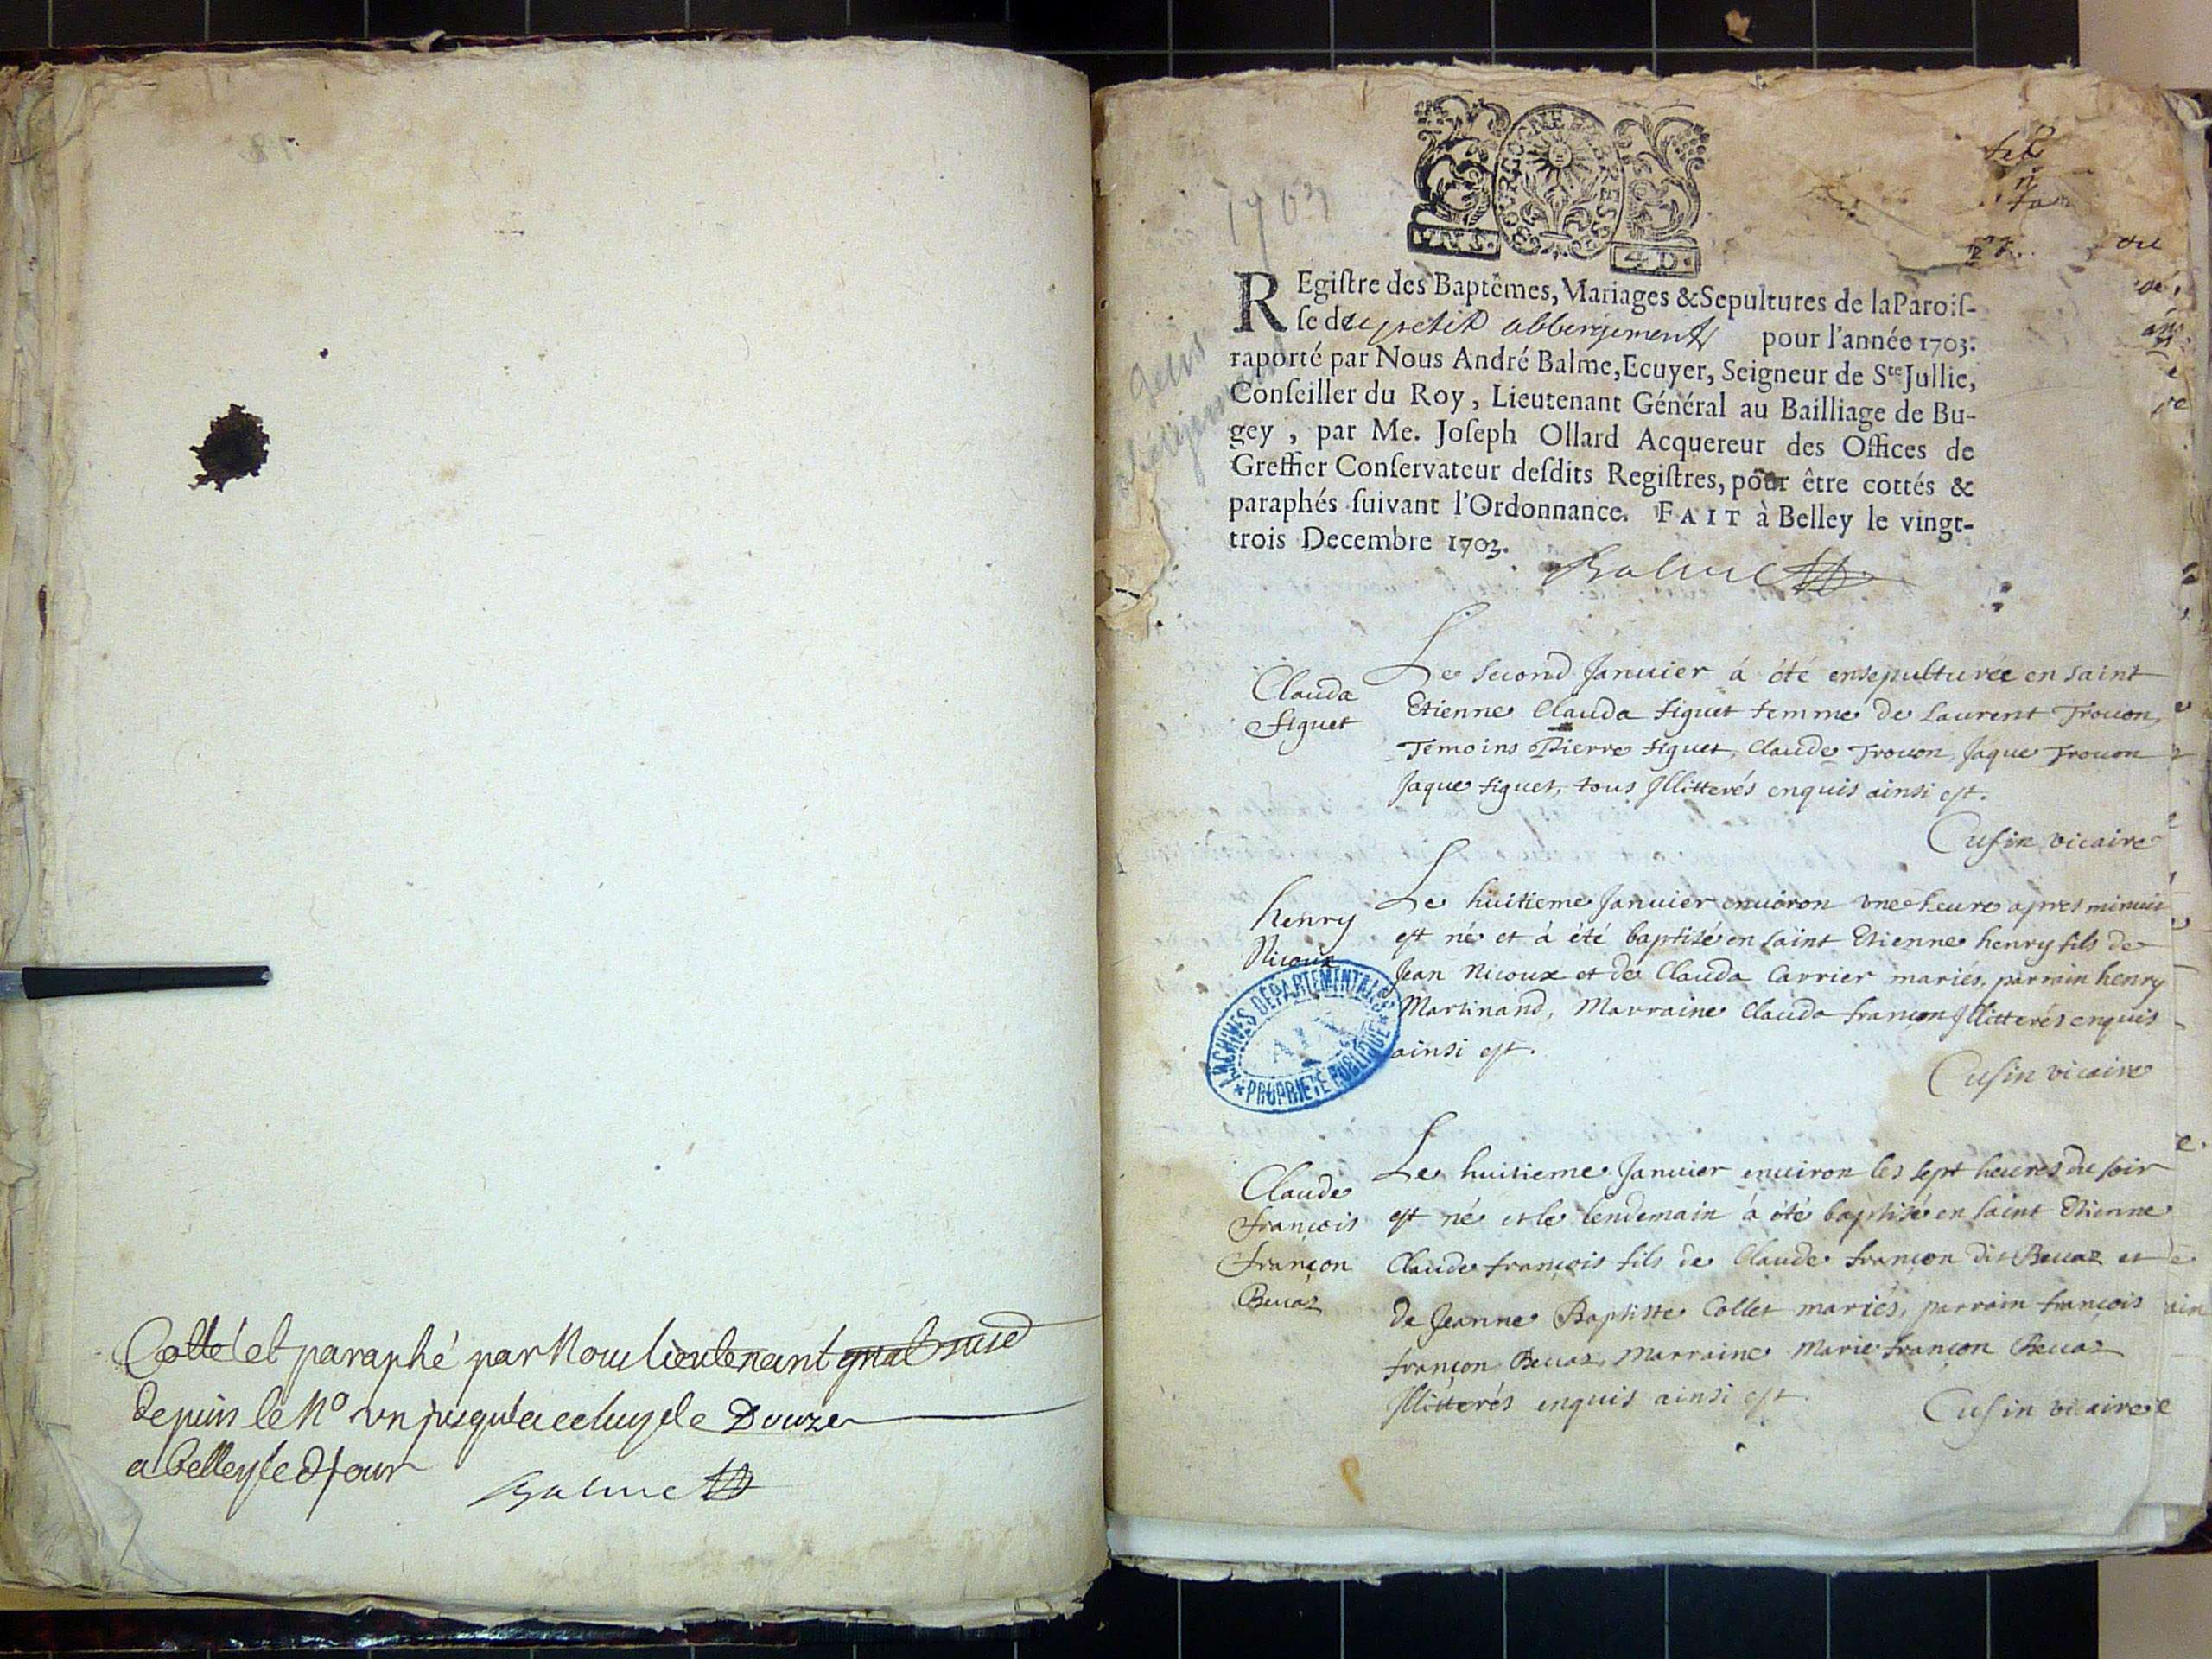 Cotté et paraphé par Nous lieutenant gnal susd
depuis le No un jusqu'a celuy de Douze
a belley led jour
Balme
1703
BOURGOGNE ET BRESSE
4 D.
REgiſtre des Baptêmes, Mariages & Sepultures de la Paroiſ-
ſe de u petit abbergement pour l'année 1703.
raporté par Nous André Balme, Ecuyer, Seigneur de Ste Jullie,
Conſeiller du Roy, Lieutenant Général au Bailliage de Bu-
gey, par Me. Joſeph Ollard Acquereur des Offices de
Greffier Conſervateur deſdits Regiſtres, pour être cottés &
paraphés ſuivant l'Ordonnance. FAIT à Belley le vingt-
trois Decembre 1703.
Balme
Clauda
figuet
Le second Januier á été ensepulturée en saint
Etienne Clauda figuet femme de Laurent Trouon,
Temoins Pierre figuet, Claude Trouon, Jaque Trouon
Jaque figuet, tous Illitterés enquis ainsi est.
Cusin vicaire
henry
Nicoux
Le huitieme Januier enuiron vne heure apres minuit
est né et à été baptisé en saint Etienne henry fils de
Jean Nicoux et de Clauda Carrier mariés, parrain henry
Martinand, Marraine Clauda françon Illitterés enquis
ainsi est.
Cusin vicaire
ARCHIVES DÉPARTEMENTALES
AIN
PROPRIÉTÉ PUBLIQUE
Claude
françois
françon
Beuaz
Le huitieme Januier enuiron les sept heures du soir
est né et le lendemain á été baptisé en saint Etienne
Claude françois fils de Claude françon dit Beuaz et
de Jeanne Baptiste Collet mariés, parrain françois
françon Beuaz, Marraine Marie françon Beuaz
Illitterés enquis ainsi est.
Cusin vicaire